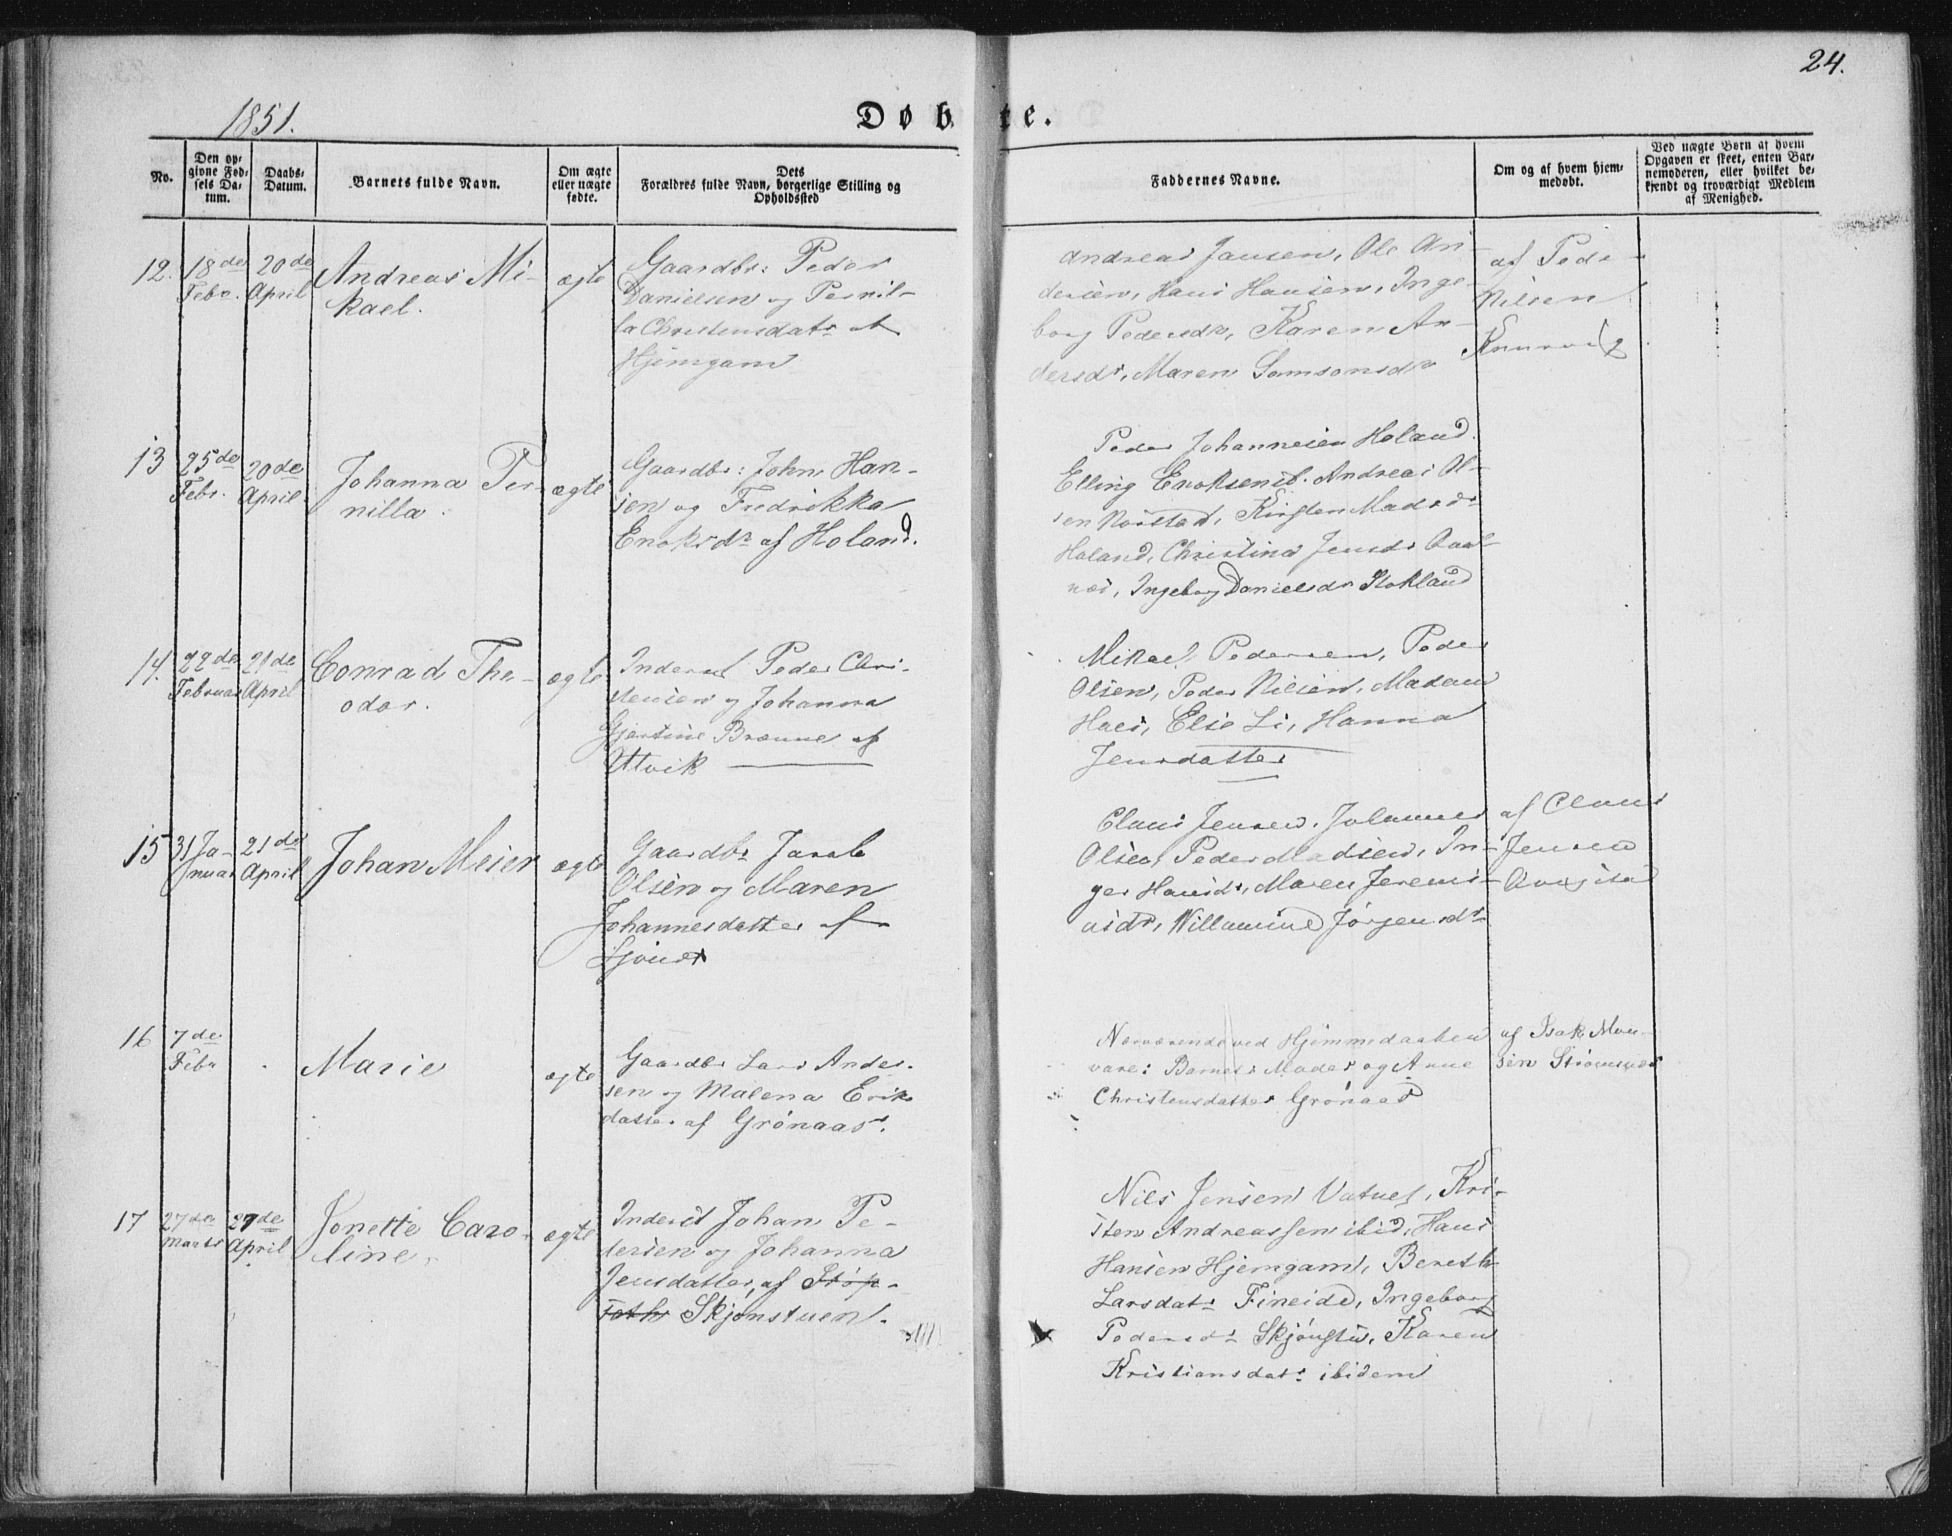 24.
1851.
Døbte.
No.
Den opgivne Fødsels Datum.
Daabs-Datum.
Barnets fulde Navn.
Om ægte eller uægte fødte.
Dets Forældres fulde Navn, borgerlige Stilling og Opholdssted
Faddernes Navne.
Om og af hvem hjemmedøbt.
Ved uægte Børn af hvem Opgaven er skeet, enten Barnemoderen, eller hvilket bekjendt og troværdigt Medlem af Menighed.
12. 18de Febr. 20de April
Andreas Mi-
kael.
ægte
Gaardbr: Peder
Danielsen og Pernil-
la Christensdatr af
Hjemgam
Andreas Jansen, Ole An-
dersen, Hans Hansen, Inge-
borg Pedersdr, Karen An-
dersdr, Maren Samsonsdr
af Peder
Nilsen
13 25de Febr. 20de April
Johanna Per-
nilla.
ægte
Gaardbr: John Han-
sen og Fredrikka
Enoksdr af Holand.
Peder Johannesen Holand.
Elling Enoksen ib. Andreas Ol-
sen Norstad, Kirsten Madsdr
Holand, Christina Jensdr
Ingeborg Danielsdr Stokland
14. 22de Februar 20de April
Conrad The-
odor.
ægte
Inderst Peder Chri-
stensen og Johanna
Gjertine Brønne af
Utvik
Mikael Pedersen, Peder
Olsen, Peder Nilsen, Madam
Elie Li, Hanna
Jensdatter
15 31 Ja-
nuar 21de April
Johan Meier
ægte
Gaardbr Jacob
Olsen og Maren
Johannesdatter af
Claus Jensen, Johannes
Olsen, Peder Madsen, In-
ger Hansdr, Maren Jeremi-
asdr, Willumine Jørgensdr
af Claus
Jensen
16 7de Febr
Marie
ægte
Gaardbr Lars Ander-
sen og Malena Erik
datter af Grønaas.
Nærværende ved Hjemmedaaben
vare: Barnets Moder og Anne
Christensdatter Grønaas
af Isak Mon-
sen Strømsnes
17 27de Marts 27de April
Jonette Caro-
line.
ægte
Inderst Johan Pe-
dersen og Johanna
Jensdatter, af Støp-
foth Skjønstuen.
Nils Jensen Vatne, Kri-
sten Andreassen ibid, Hans
Hansen Hjemgam, Bereth
Larsdatr Fineide, Ingeborg
Pedersdr Skjønstu, Karen
Kristiansdatr ibidem